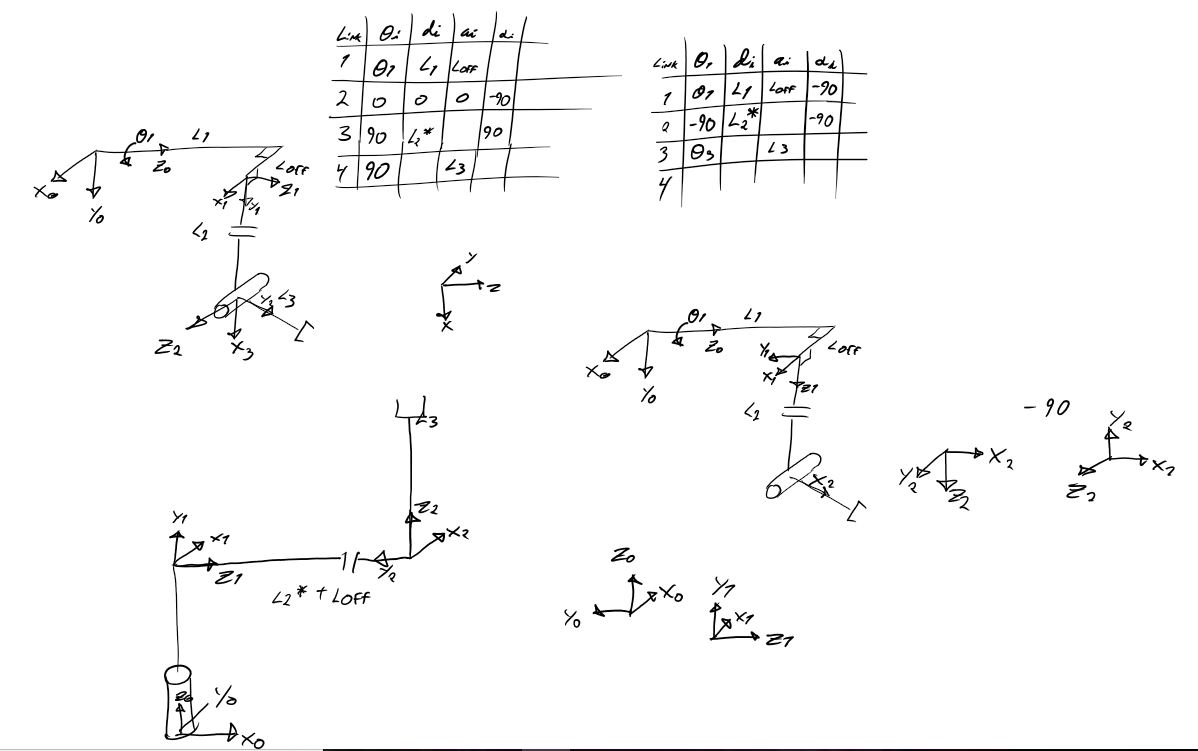 Link θi di ai αi
1 θ1 L1 Loff
2 0 0 0 -90
3 90 L2* 90
4 90 L3
Link θi di ai αi
1 θ1 L1 Loff -90
2 -90 L2* -90
3 θ3 L3
4
θ1 L1
X0 Z0 Y0
Loff
X1 Y1 Z1
L2
Y3 L3
Z2 X3
Y
Z
X
θ1 L1
X0 Z0 Y0
Loff
Y1 X1 Z1
L2
X2
X2
Y2
Z2
-90
Y2
X2
Z2
L3
Z2
X2
Y2
Y1
X1
Z1
L2* + Loff
Z0
Y0
X0
Z0
X0
Y0
Y1
X1
Z1